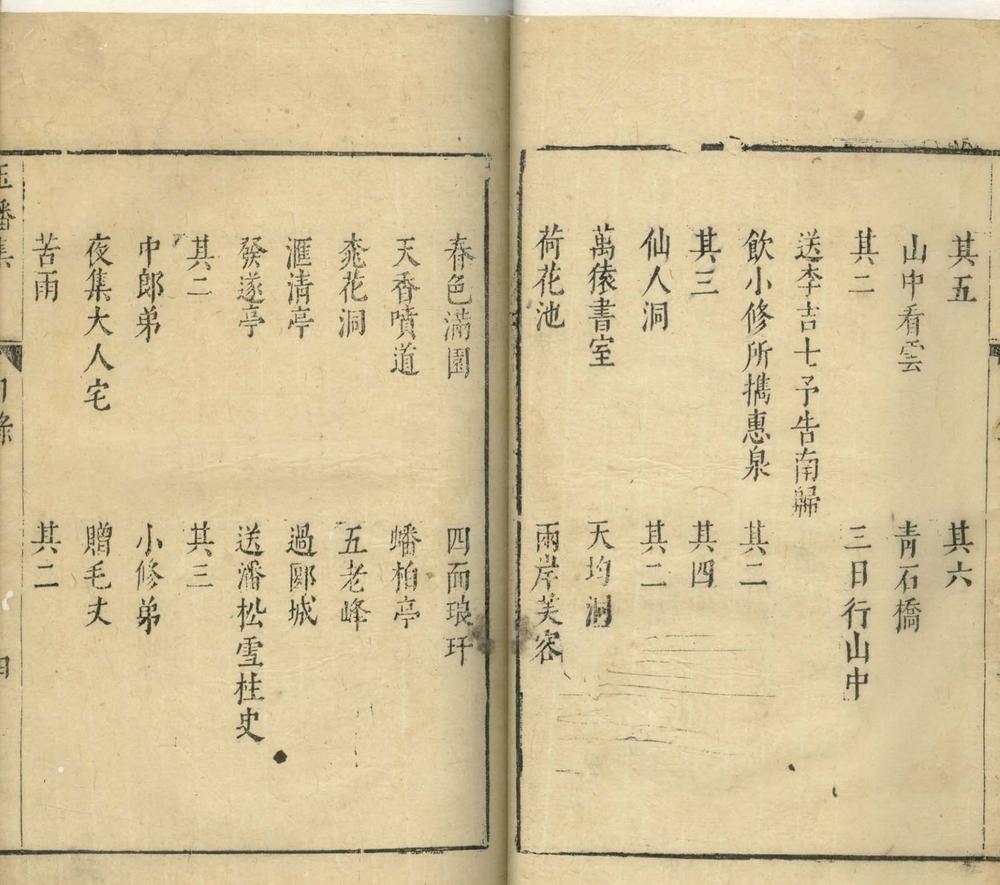 其五 其六
山中看雲 青石橋
其二 三日行山中
送李吉七予告南歸
飲小修所攜惠泉 其二
其三 其四
仙人洞 其二
萬㯶書室 天均洞
荷花池 兩岸芙容
春色滿園 四面琅玕
天香噴道 蟠柏亭
桃花洞 五老峰
滙清亭 過郾城
發遂亭 送潘松雪柱史
其二 其三
中郎弟 小修弟
夜集大人宅 贈毛丈
苦雨 其二
玉蟠集 目錄 四